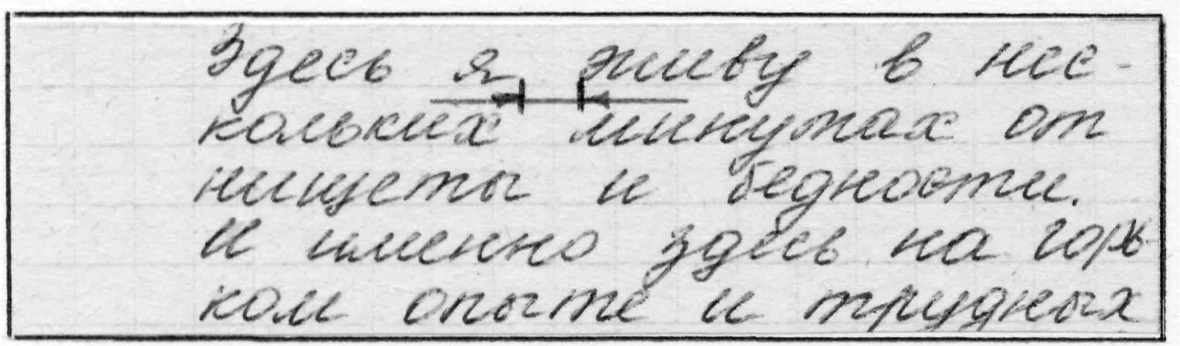 Здесь я живу в нес-
кольких минутах от
нищеты и бедности.
И именно здесь на горь-
ком опыте и трудных